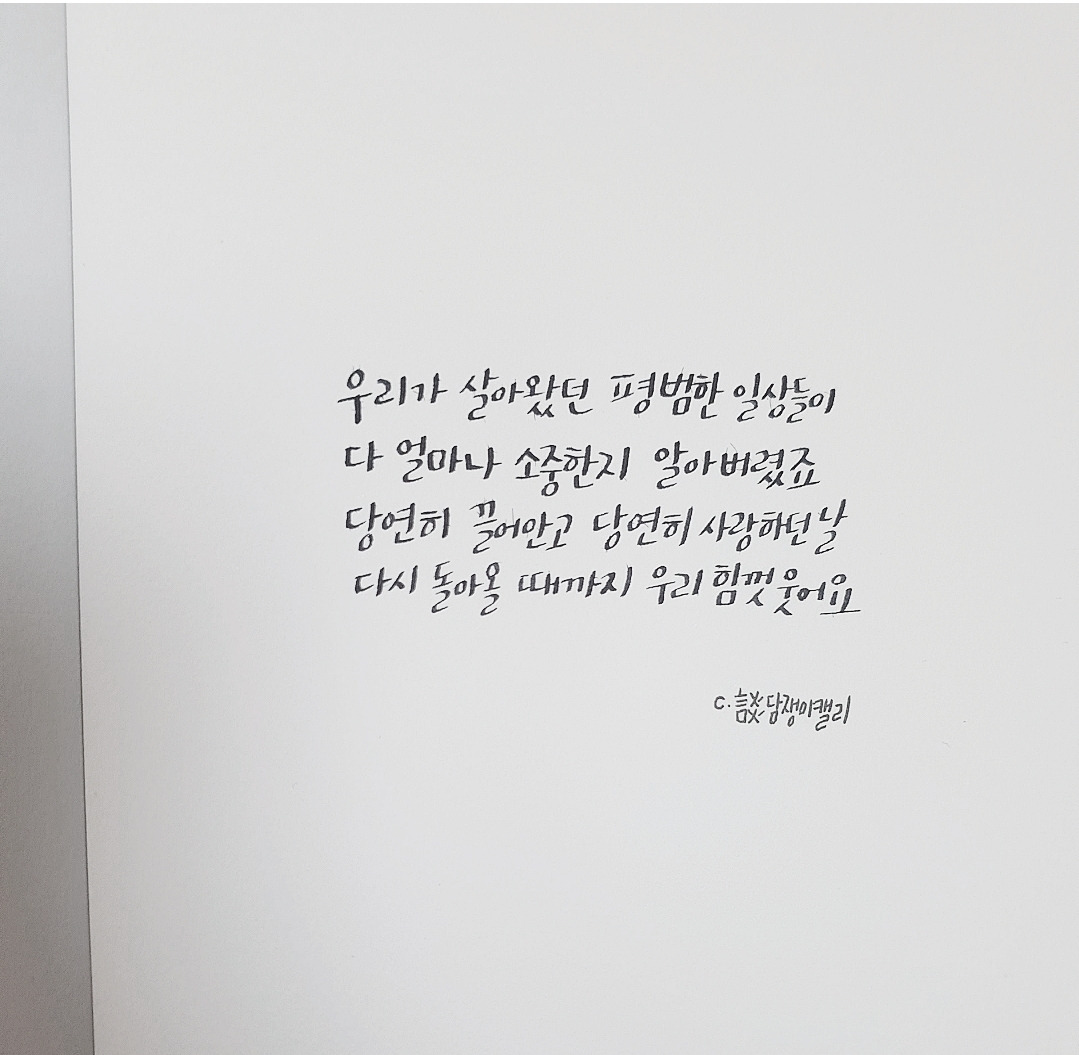 우리가 살아왔던 평범한 일상들이
다 얼마나 소중한지 알아버렸죠
당연히 끌어안고 당연히 사랑하던 날
다시 돌아올 때까지 우리 힘껏 웃어요
c. 談담쟁이캘리